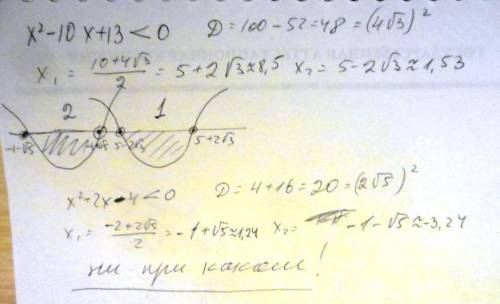 x²-10x+13<0 D=100-52=48=(4√3)²
x₁= (10+4√3)/2 =5+2√3≈8,5 x₂=5-2√3≈1,53
2 1
-1-√5 -1+√5 5-2√3 5+2√3
x²+2x-4<0 D=4+16=20=(2√5)²
x₁= (-2+2√5)/2 =-1+√5≈1,24 x₂= -1-√5≈-3,24
ни при каком!